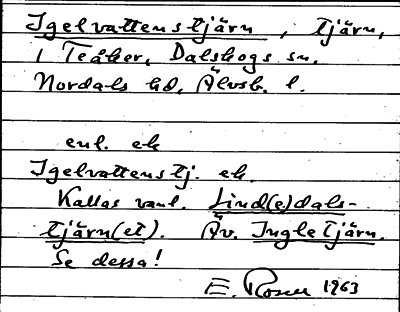 Igelvattenstjärn, tjärn,
i Teåker, Dalskogs sn.
Nordals hd, Älvsb. l.
enl. ek
Igelvattenstj. ek.
Kallas vanl. Lind(e)dals-
tjärn(et). Äv. Ingletjärn.
Se dessa!
E. Rosen 1963